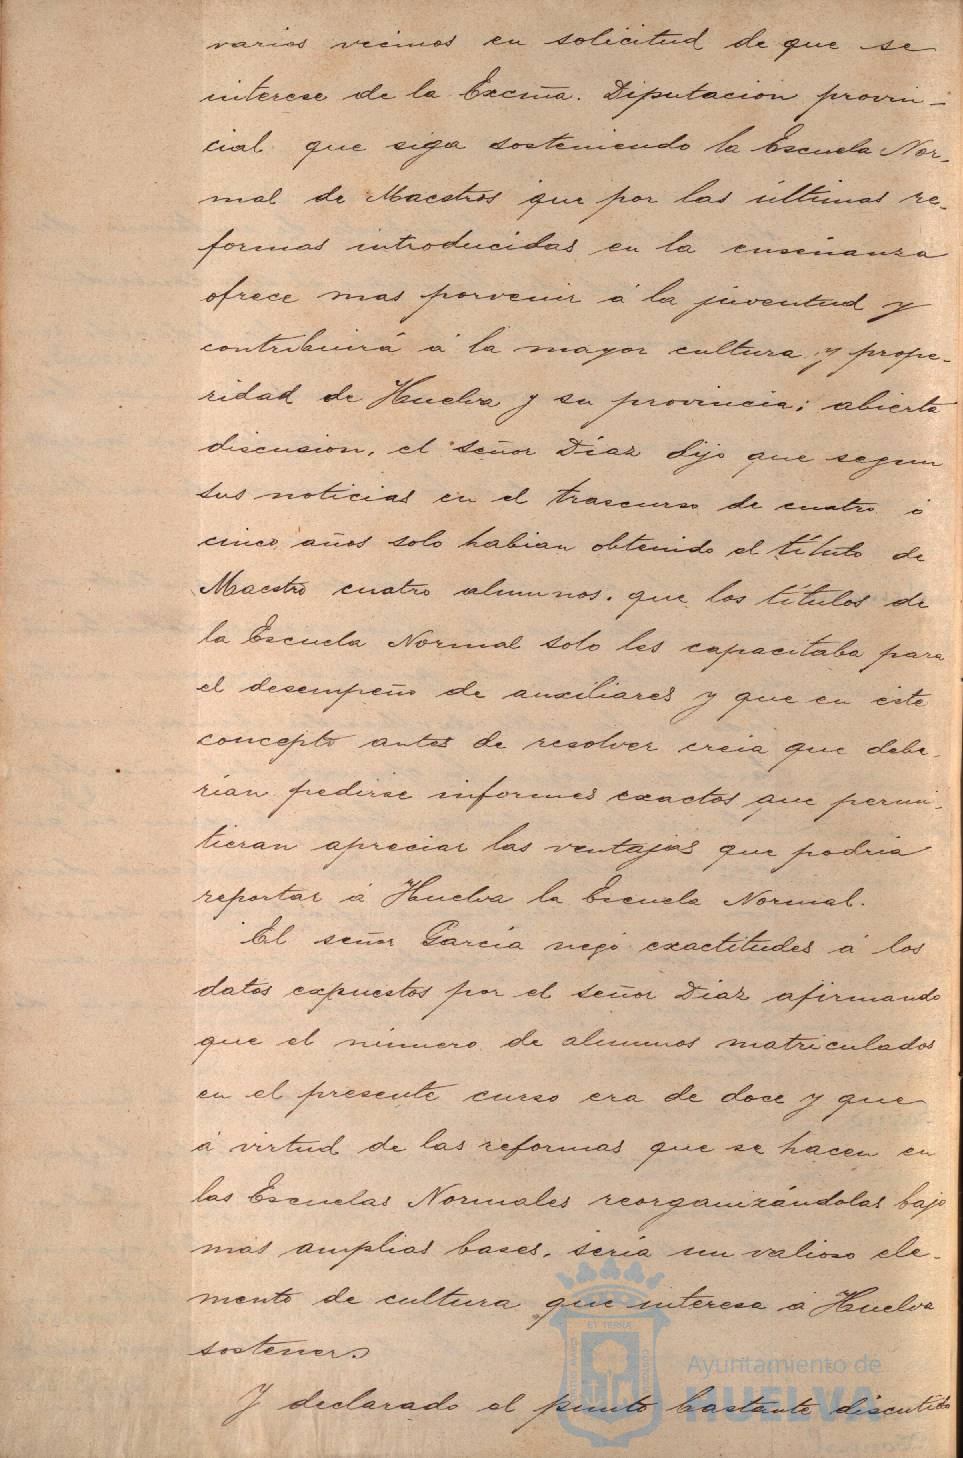 varios vecinos en solicitud de que se
interese de la Excma. Diputacion provin-
cial que siga sosteniendo la Escuela Nor-
mal de Maestros que por las últimas re-
formas introducidas en la enseñanza
ofrece mas porvenir á la juventud y
contribuirá á la mayor cultura y prope-
ridad de Huelva y su provincia; abierta
discusion, el señor Díaz dijo que segun
sus noticias en el trascurso de cuatro ó
cinco años solo habian obtenido el título de
Maestro cuatro alumnos, que los títulos de
la Escuela Normal solo les capacitaba para
el desempeño de auxiliares y que en este
concepto antes de resolver creia que debe-
rían pedirse informes exactos que permi-
tieran apreciar las ventajas que podria
reportar á Huelva la Escuela Normal.
El señor García negó exactitudes á los
datos expuestos por el señor Diaz afirmando
que el número de alumnos matriculados
en el presente curso era de doce y que
á virtud de las reformas que se hacen en
las Escuelas Normales reorganizándolas bajo
mas amplias bases, sería un valioso ele-
mento de cultura que interesa á Huelva
sostener.
Y declarado el punto bastante discutido
Ayuntamiento de
HUELVA